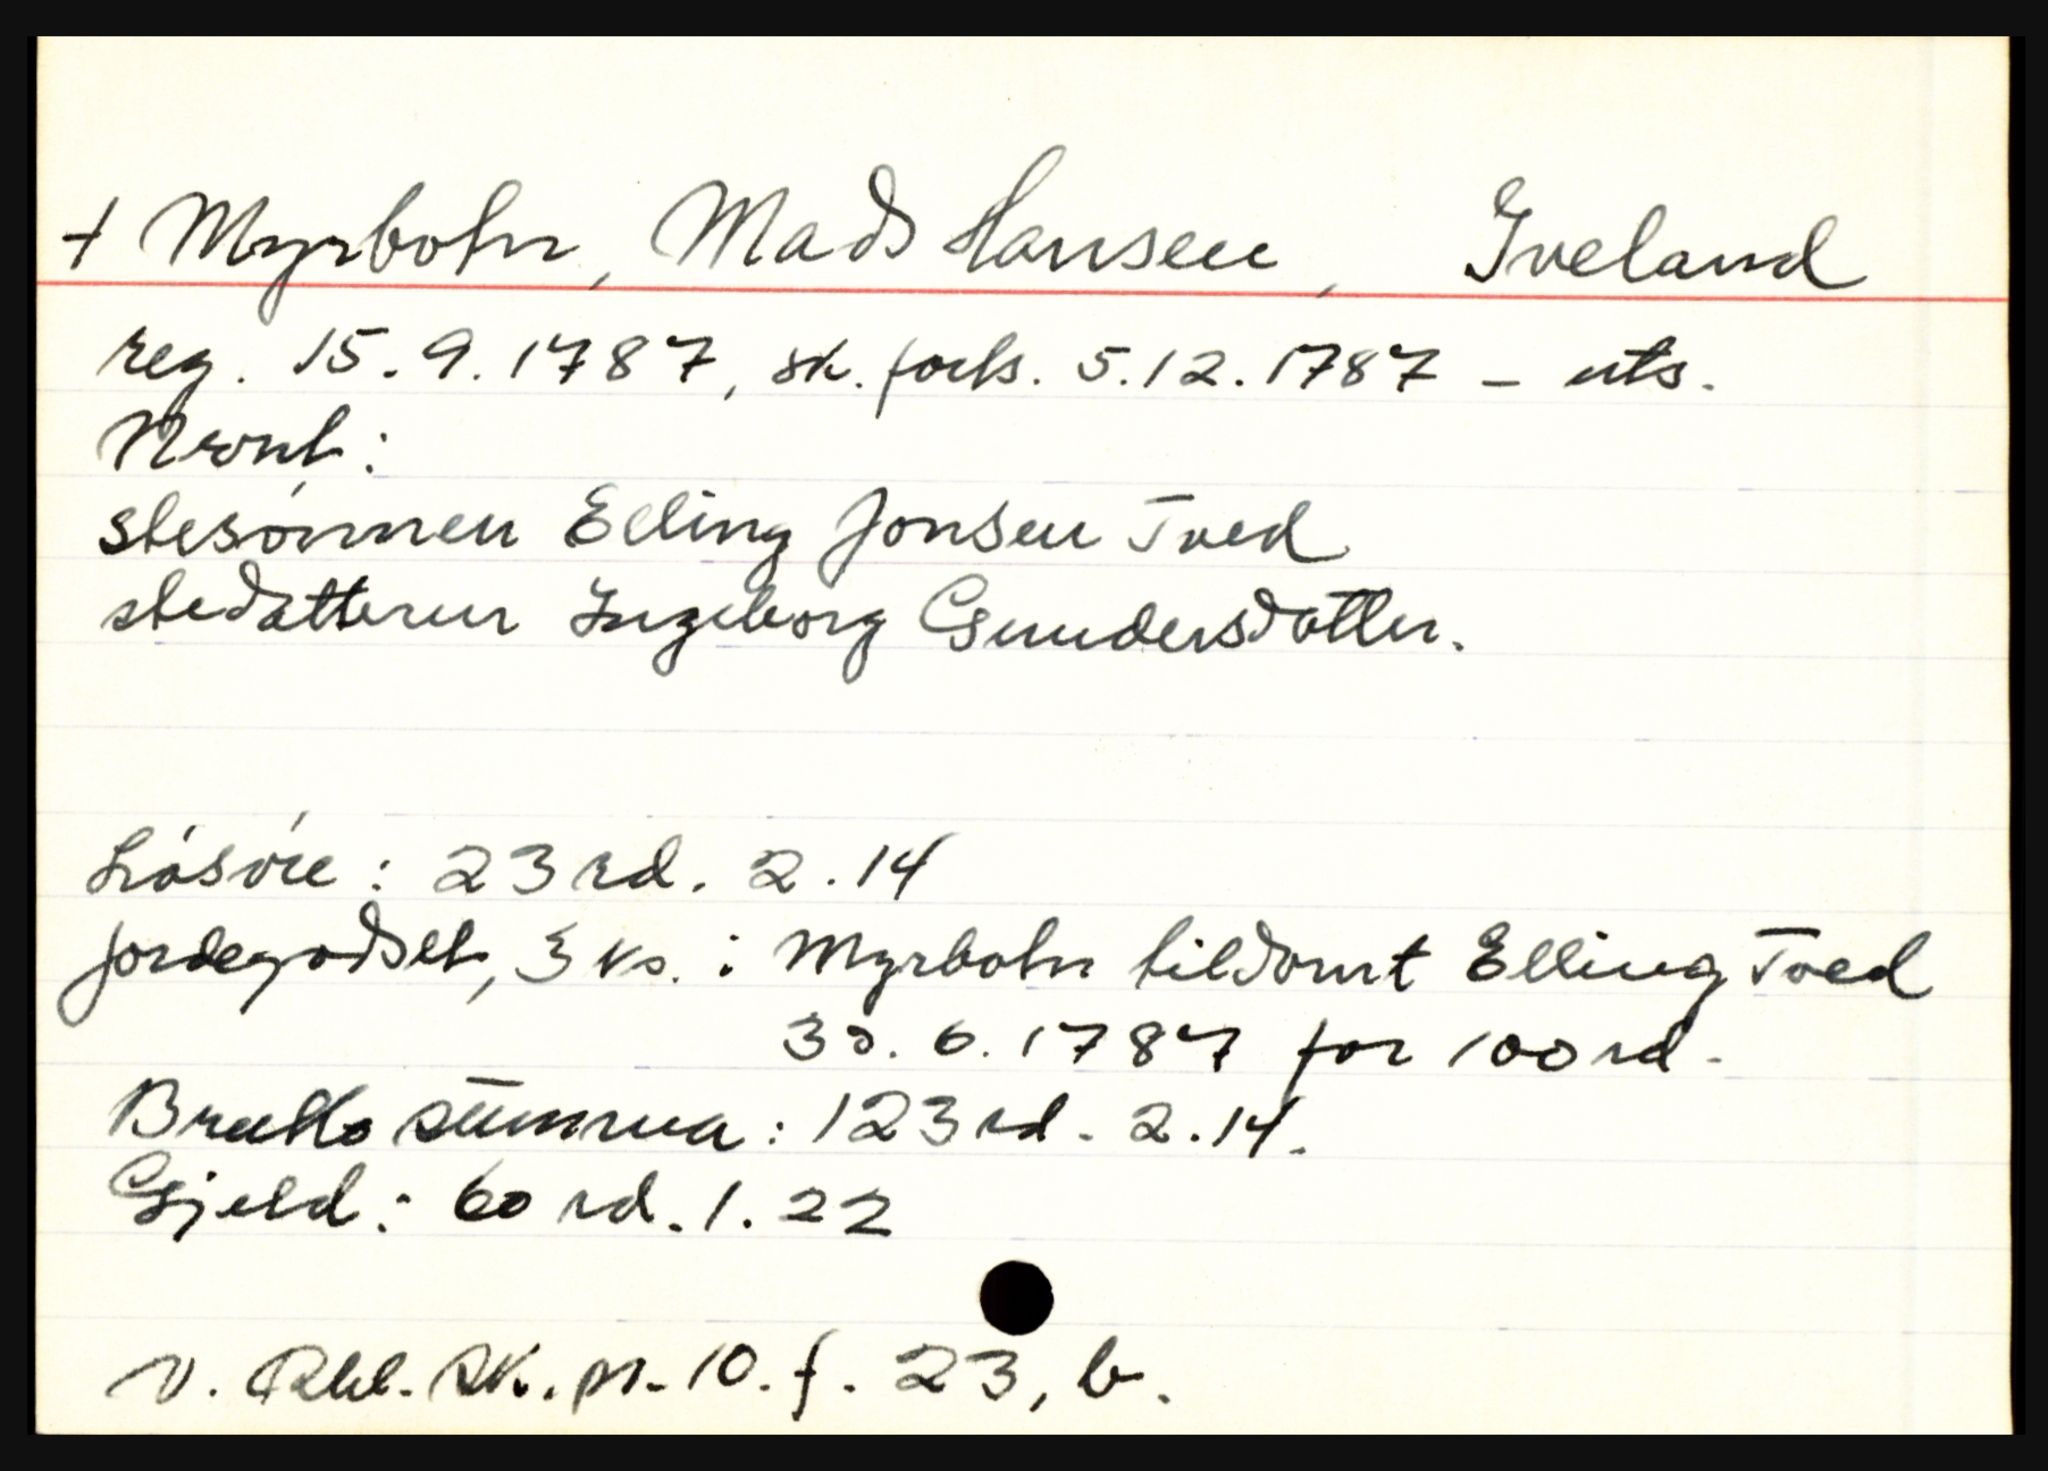 + Myrbohn, Mads Hansen, Iveland
reg. 15.9.1787, sk. forls. 5.12.1787 - uts.
stesønnen Elling Jonsen Tved
stedatteren Ingeborg Gundersdotter.
Løsøre: 23 rd. 2.14
jordegodset, 3 ks. i Myrbohn tildømt Elling Tved
30.6.1787 for 100 rd.
Brutto summa: 123 rd. 2.14.
Gjeld: 60 rd. 1.22
V. Rbl. sk. pr. 10. f. 23, b.